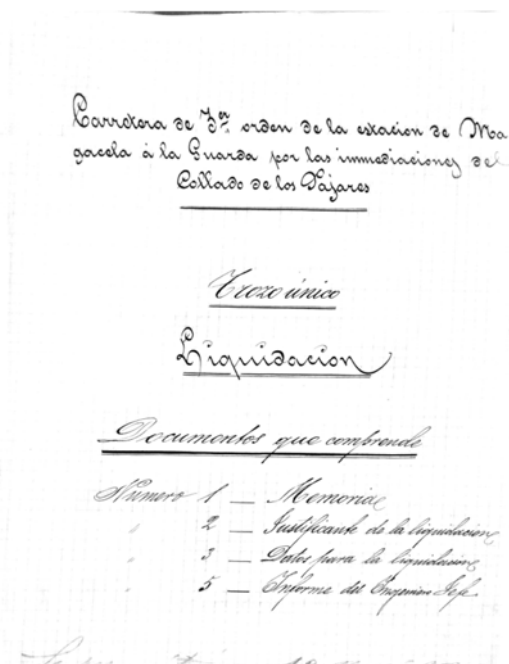 Carretera de 3er orden de la estacion de Ma
gacela á la Guarda por las immediaciones del
Collado de los Pájares
Trozo único
Liquidacion
Documentos que comprende
Número 1 — Memoria
" 2 — Justificante de la liquidacion
" 3 — Datos para la liquidacion
" 5 — Informe del Ingeniero Jefe